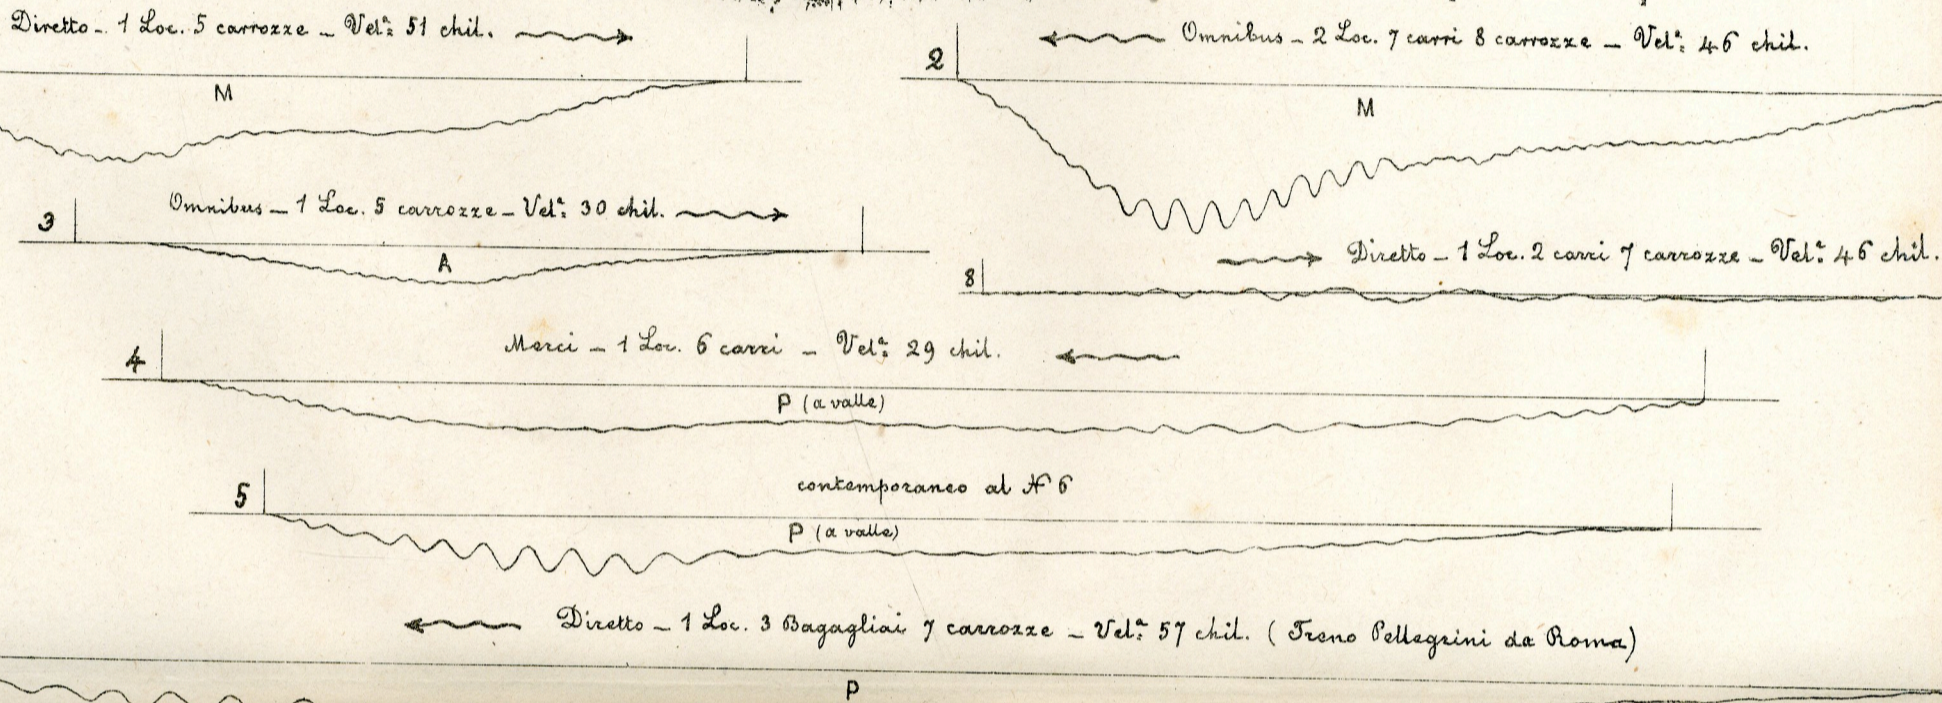 Diretto - 1 Loc. 5 carrozze - Vel.ª 51 chil.
2
Omnibus - 2 Loc. 7 carri 8 carrozze - Vel.ª 46 chil.
M
M
3
Omnibus - 1 Loc. 5 carrozze - Vel.ª 30 chil.
A
8
Diretto - 1 Loc. 2 carri 7 carrozze - Vel.ª 46 chil.
4
Merci - 1 Loc. 6 carri - Vel.ª 29 chil.
P (a valle)
5
contemporaneo al Nº 6
P (a valle)
Diretto - 1 Loc. 3 Bagagliai 7 carrozze - Vel.ª 57 chil. (Treno Pellegrini da Roma)
P